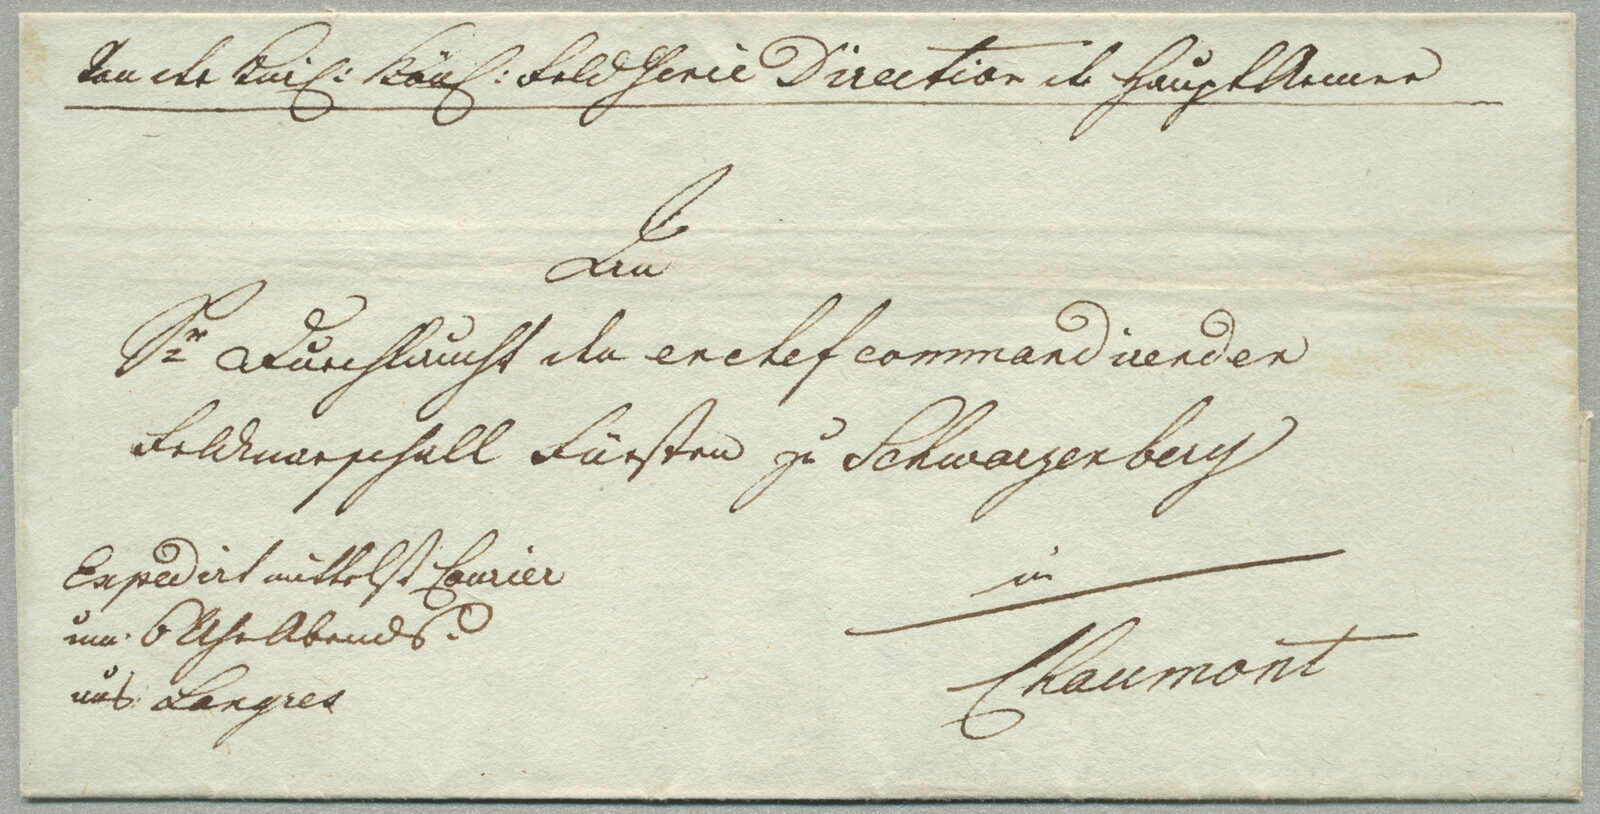 Von der Kais: König: Feld Genie Direction der Haupt Armee
An
Sr Durchlaucht den en chef commandirenden
Feldmarschall Fürsten zu Schwarzenberg
in
Chaumont
Expedirt mittelst Courier
um 6 Uhr Abends.
aus Langres